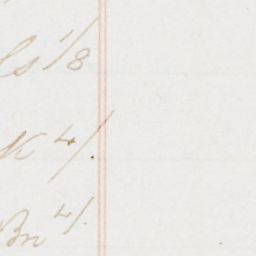 ls 1/8
K 4/.
Bn 4/.